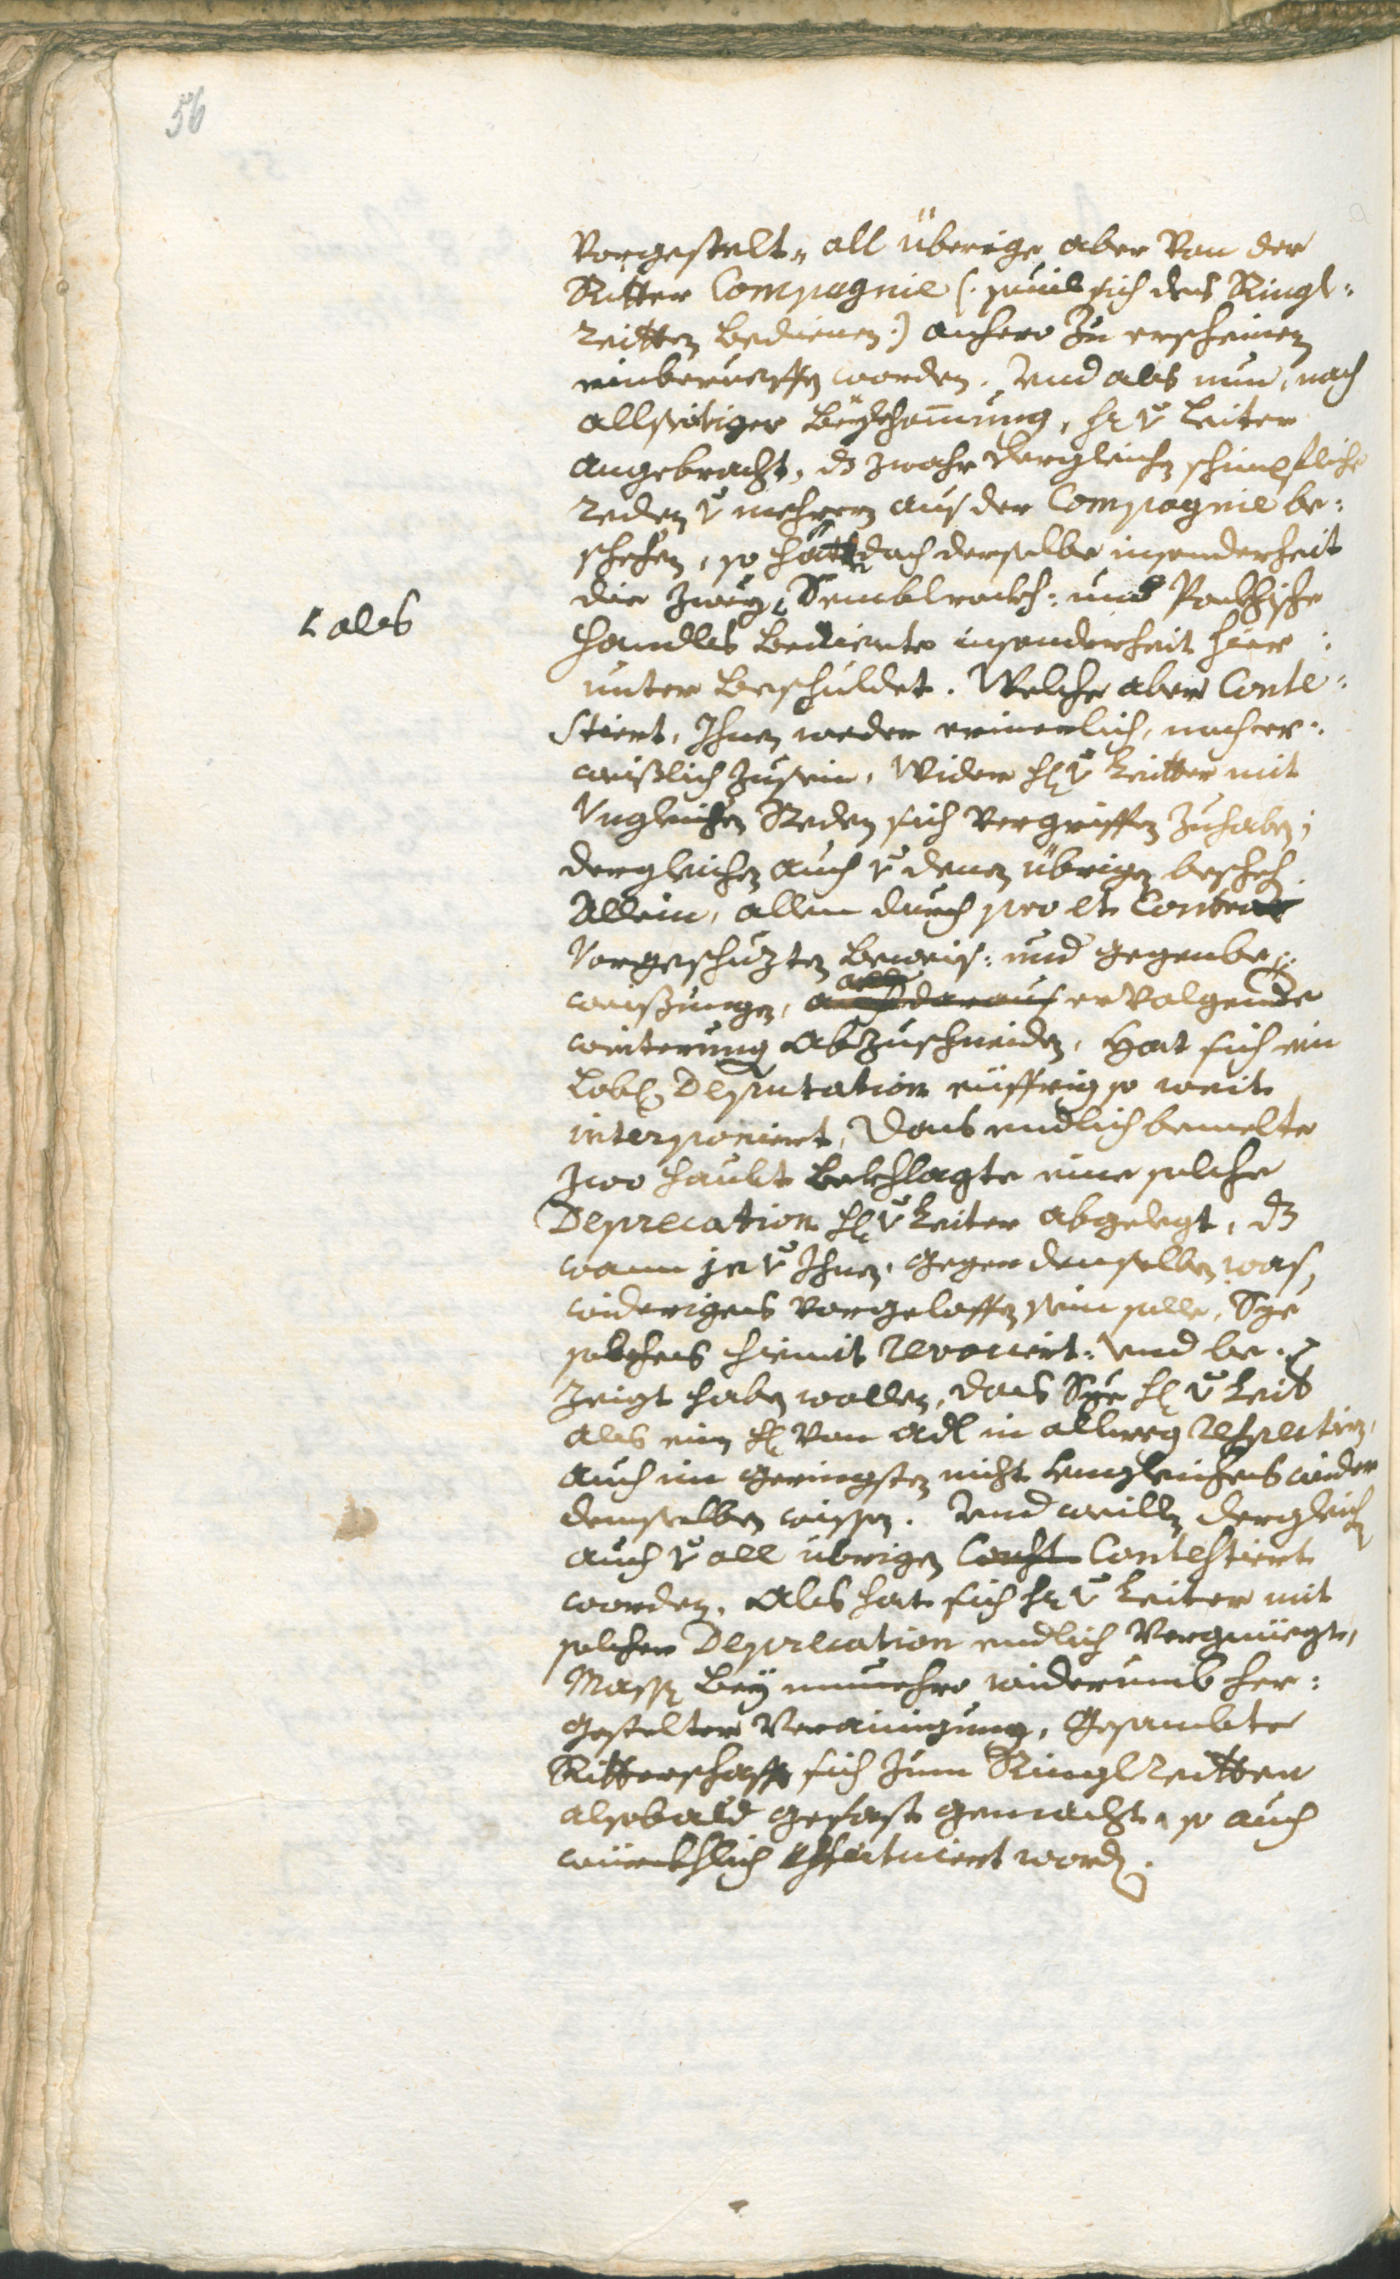 56
vorgestelt, all überige aber von der
Ritter Compagnie (: souil sich des Ringl=
reitten bedienen :) anhero zu erscheinen
einberueffen worden. Vnd als nun, nach
allseitiger beÿkhommung, Hr v Leiter
angebracht, dz zwahr dergleichen schimpfliche
reden v mehrern aus der Compagnie be=
schehen, so hätte doch derselbe insonderheit
die zweÿ, Semblrockh: und
als
handls bediente insonderheit hier=
unter beschuldet. Welche aber Conte=
stiert, Ihnen weder erinerlich, noch er=
weißlich zusein, wider H v Leitter mit
Vngleichen Reden sich vergriffen zuhaben;
dergleichen auch v denen übrigen bescheh.
Allein, allen durch pro et Contra
vorgeschuzten beweis: und gegenbe=
weißungen, alle auch daraus ervolgende
weiterung abzuschneiden, hat sich ein
Lobl. Deputation eüffrig so weit
interponiert, dans endlich bemelte
zwo haubt bekhlagte eine solche
Deprecation H v Leiter abgelegt, dz
wann je v Ihnen gegen demselben was
widerigens vorgeloffen sein solle, Sÿe
solches hiemit revociert: vnd be=
zeigt haben wollen, dans Sÿe H v Leit
als ein H von Adl in allweg respectiern,
auch im geringsten nicht vngleiches wider
demselben wissen. Vnd weillen dergleichen
auch v all übrigen Const Contestiert
worden. Als hat sich Hr v Leiter mit
solcher Deprecation endlich vergnüegt,
Massen beÿ nunmehro widerumb her=
gestelter Verainigung, Gesambte
Ritterschafft sich zum Ringlreitten
alsobald gefast gemacht, so auch
würckhlich effectuiert worden.